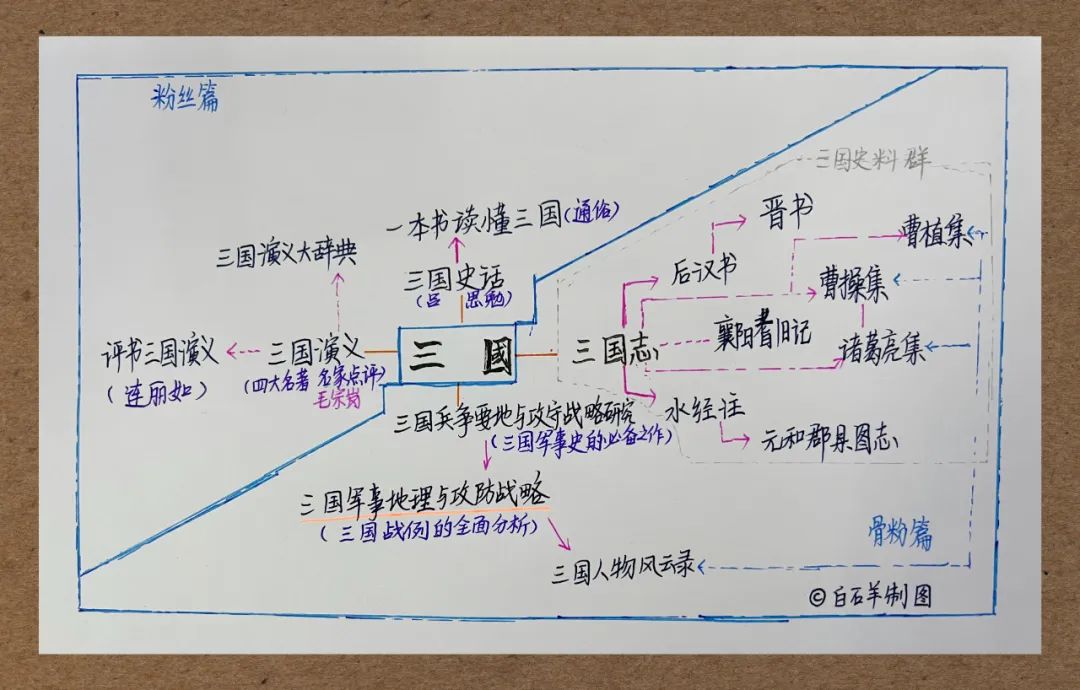 粉丝篇
三国史料群
一本书读懂三国(通俗)
晋书
曹植集
三国演义大辞典
三国史话
(吕思勉)
后汉书
曹操集
评书三国演义
(连丽如)
三国演义
(四大名著 名家点评)
毛宗岗
三國
三国志
襄阳耆旧记
诸葛亮集
三国兵争要地与攻守战略研究
(三国军事史的必备之作)
水经注
元和郡县图志
三国军事地理与攻防战略
(三国战例的全面分析)
三国人物风云录
骨粉篇
©白石羊制图